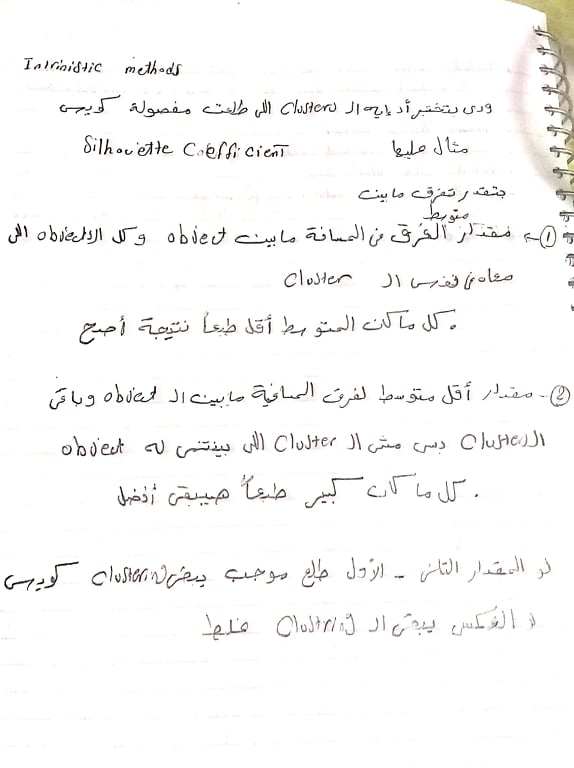 Intrinistic methods
ودى بتختبر أد إيه الـ Clusters اللى طلعت مفصولة كويس
مثال عليها Silhouette Coefficient
بتقدر تفرق مابين
متوسط
① - مقدار الفرق فى المسافة مابين object وكل الـ objects اللى
معاه فى نفس الـ Cluster
. كل ما كان المتوسط أقل طبعاً نتيجة أصح
② - مقدار أقل متوسط لفرق المسافة مابين الـ object وباقى
الـ Clusters بس مش الـ Cluster اللى بينتمى له object
. كل ما كان كبير طبعاً هيبقى أفضل
لو المقدار التانى - الأول طلع موجب يبقى Clustering كويس
لو العكس يبقى الـ Clustring غلط